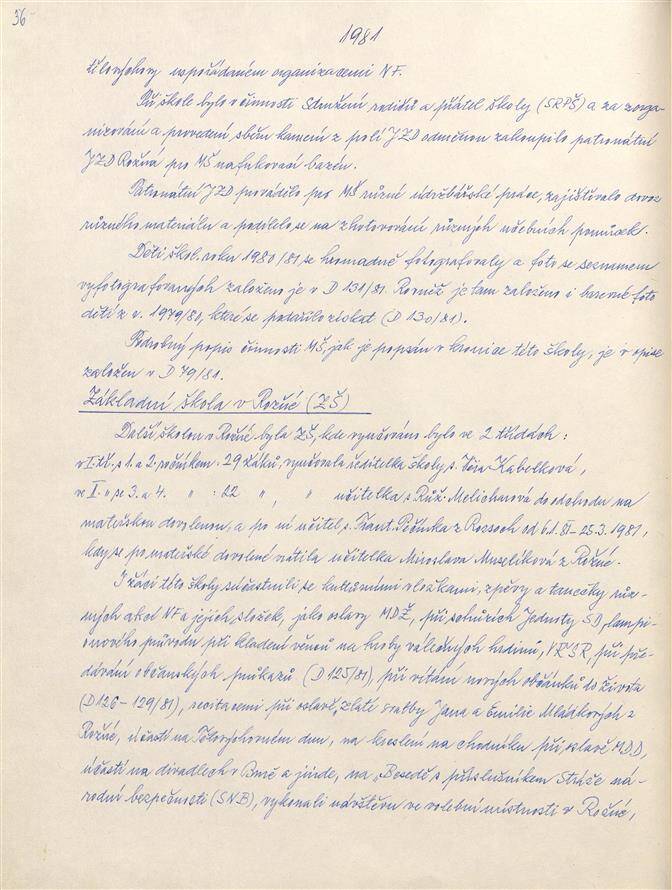 36
1981
tělovýchovy uspořádaném organizacemi NF.
Při škole bylo v činnosti Sdružení rodičů a přátel školy (SRPŠ) a za zorga-
nizování a provedení sběru kamení z polí JZD odměnou zakoupilo patronátní
JZD Rožná pro MŠ nafukovací bazén.
Patronátní JZD provádělo pro MŠ různé údržbářské práce, zajišťovalo dovoz
různého materiálu a podílelo se na zhotovování různých učebních pomůcek.
Děti škol. roku 1980/81 se hromadně fotografovaly a foto se seznamem
vyfotografovaných založeno je v D 131/81. Rovněž je tam založeno i barevné foto
dětí z r. 1979/80, které se podařilo získat (D 130/81).
Podrobný popis činnosti MŠ, jak je popsán v kronice této školy, je v opise
založen v D 79/81.
Základní škola v Rožné (ZŠ)
Další školou v Rožné byla ZŠ, kde vyučováno bylo ve 2 třídách:
v I. tř. s 1. a 2. ročníkem: 29 žáků, vyučovala ředitelka školy s. Věra Kabelková,
ve II. " se 3. a 4. " : 22 " , " učitelka s. Růž. Melicharová do odchodu na
mateřskou dovolenou, a po ní učitel s. Frant. Pečinka z Rozsoch od 6.1.81-25.3.1981,
kdy se po mateřské dovolené vrátila učitelka Miroslava Muselíková z Rožné.
I žáci této školy súčastnili se kulturními vložkami, zpěvy a tanečky růz-
ných akcí NF a jejich složek, jako oslavy MDŽ, při schůzích Jednoty SD, lampi-
onového průvodu při kladení věnců na hroby válečných hrdinů, VŘSR, při pře-
dávání občanských průkazů (D 125/81), při vítání nových občánků do života
(D 126-129/81), recitacemi při oslavě "zlaté svatby Jana a Emilie Mládkových z
Rožné, účastí na Tělovýchovném dnu, na kreslení na chodníku při oslavě MDD,
účastí na divadlech v Brně a jinde, na "Besedě s příslušníkem Stráže ná-
rodní bezpečnosti (SNB), vykonali návštěvu ve volební místnosti v Rožné,